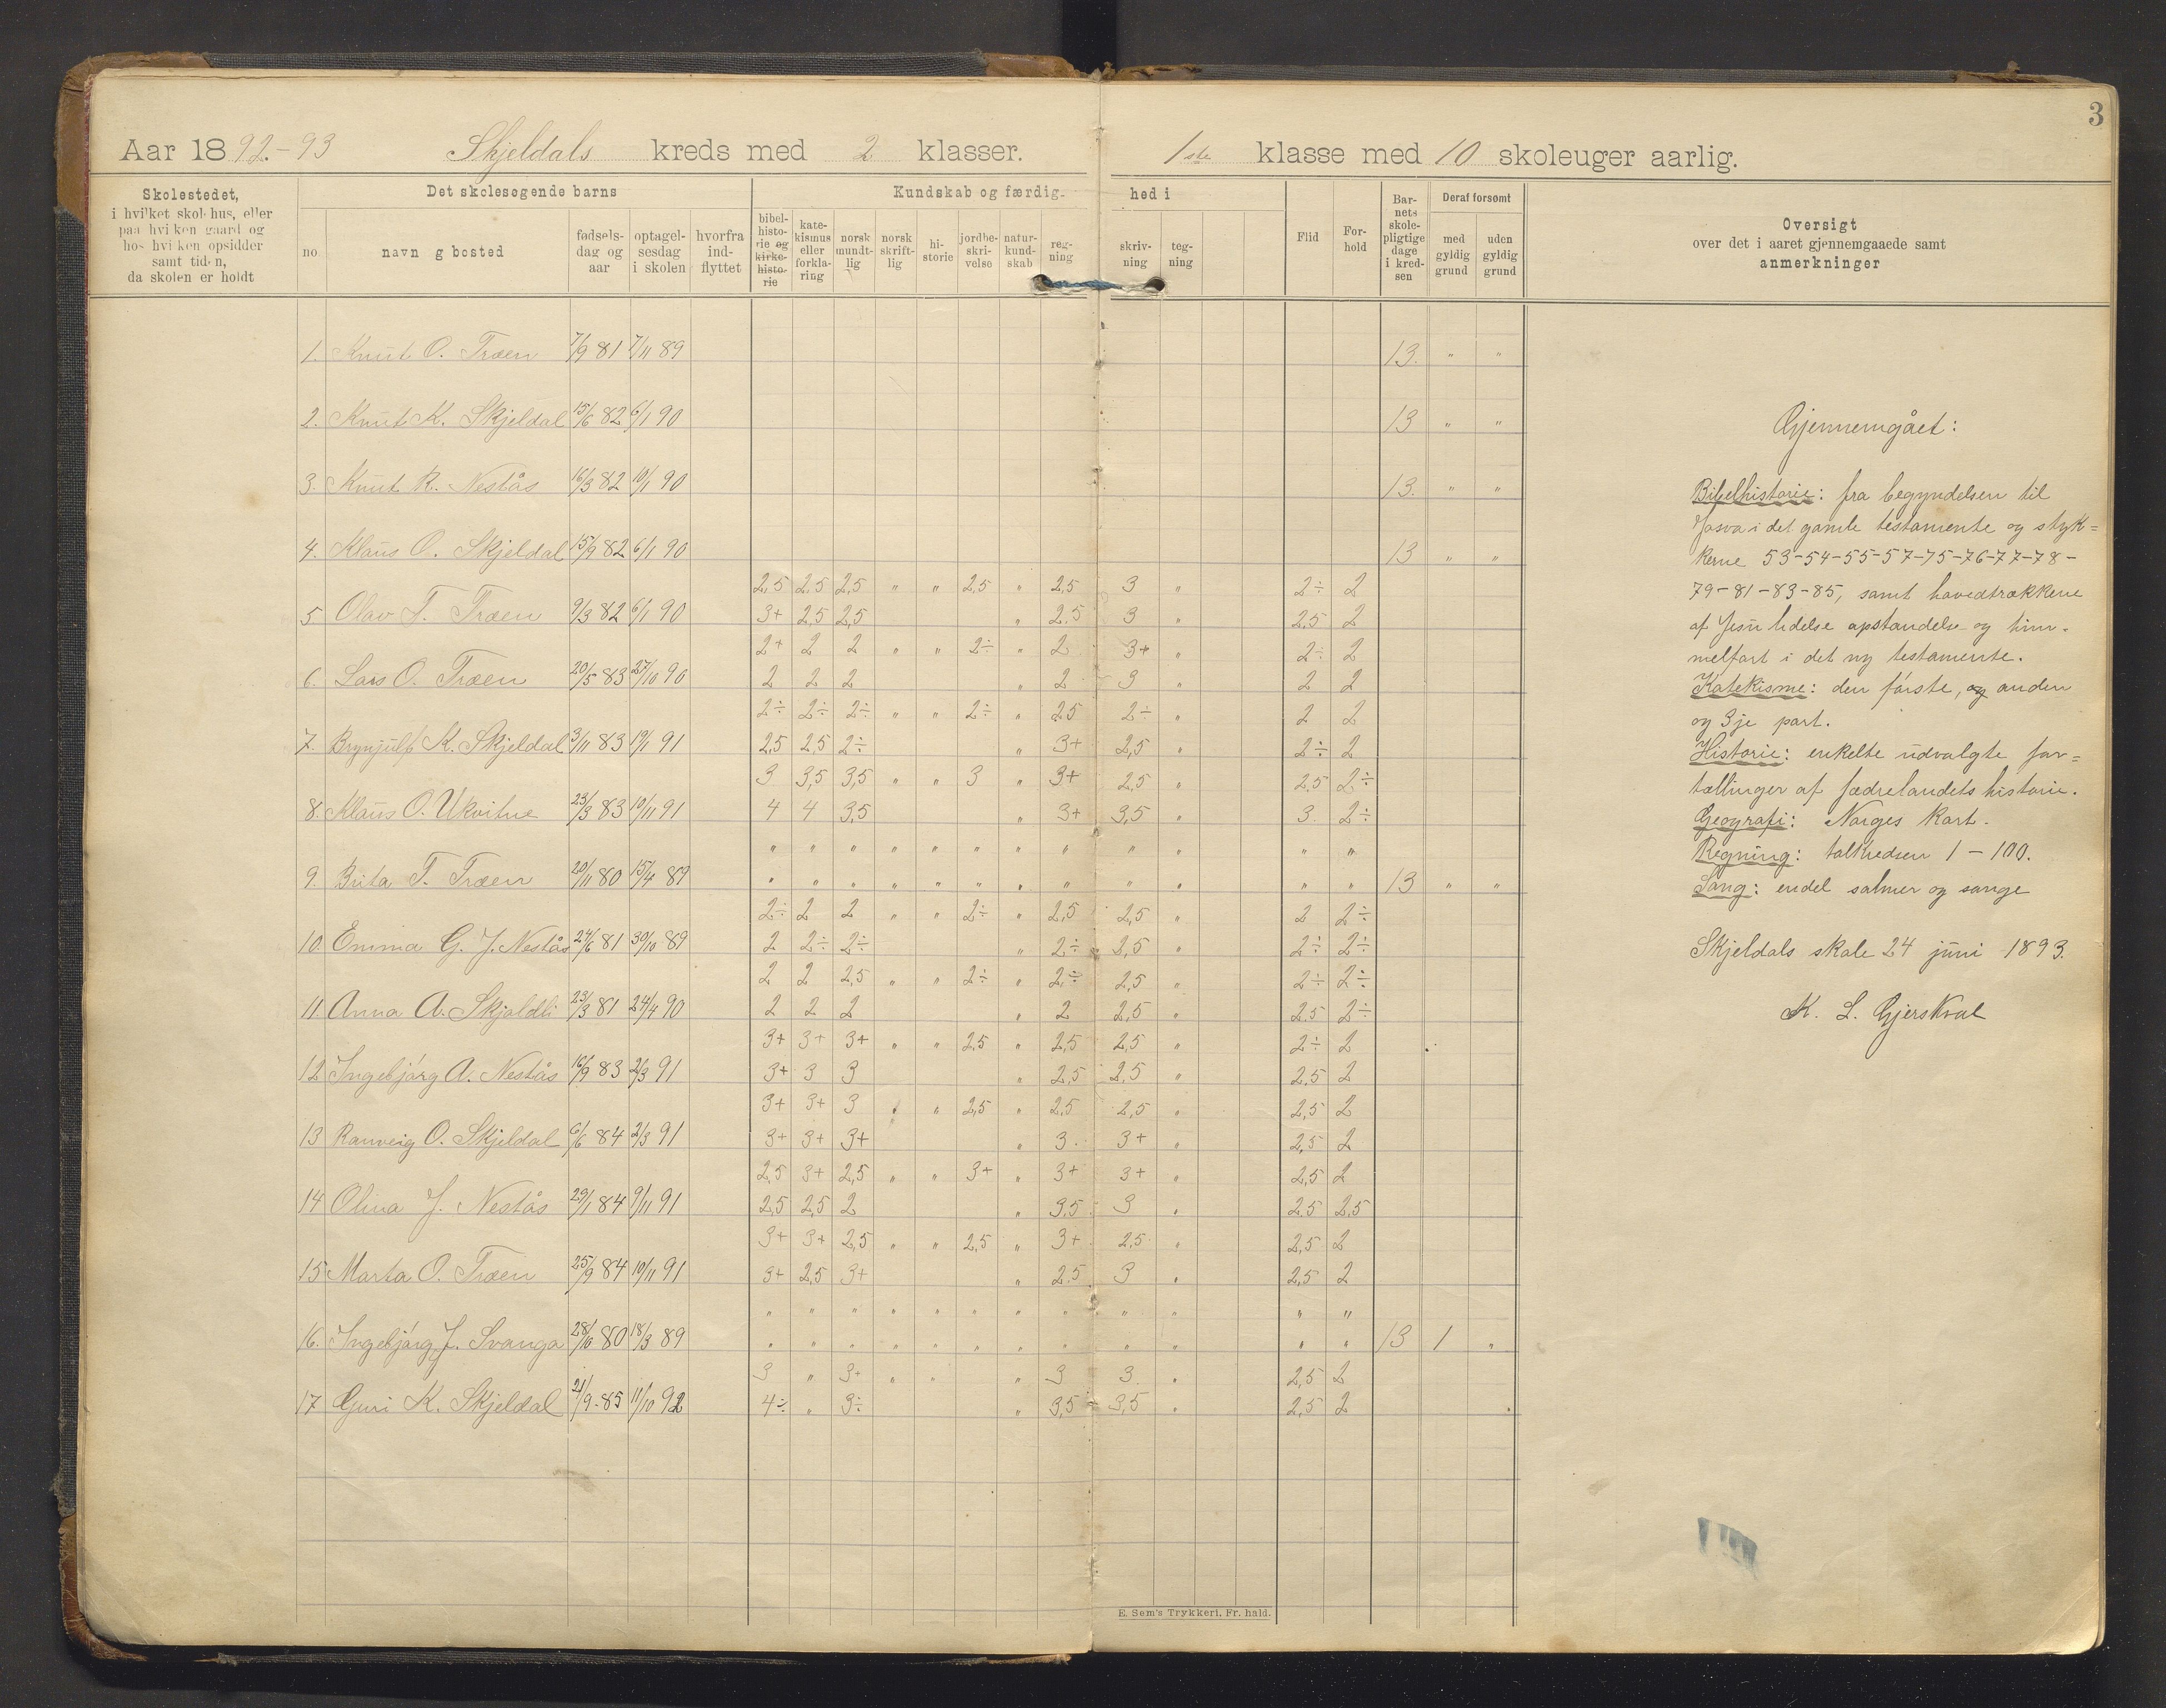 3
Aar 1892.-93 Skjeldals kreds med 2 klasser. 1ste klasse med 10 skoleuger aarlig.
Skolestedet,
i hvilket skolehus, eller
paa hvilken gaard og
hos hvilken opsidder
samt tiden,
da skolen er holdt
Det skolesøgende barns
no
navn g bosted
fødsels-
dag og
aar
optagel-
sesdag
i skolen
hvorfra
ind-
flyttet
Kundskab og færdig-
hed i
bibel-
histo-
rie og
kirke-
histo-
rie
kate-
kismus
eller
forkla-
ring
norsk
mundt-
lig
norsk
skrift-
lig
hi-
storie
jordbe-
skri-
velse
natur-
kund-
skab
reg-
ning
skriv-
ning
teg-
ning
Flid
For-
hold
Bar-
nets
skole-
pligtige
dage
i kred-
sen
Deraf forsømt
med
gyldig
grund
uden
gyldig
grund
Oversigt
over det i aaret gjennemgaaede samt
anmerkninger
1. Knut O. Træen 7/9 81 7/11 89 13. " "
2. Knut K. Skjeldal 15/6 82 6/1 90 13 " "
3. Knut R. Nestås 16/3 82 10/1 90 13. " "
4. Klaus O. Skjeldal 15/9 82 6/1 90 13 " "
2,5 2,5 2,5 " " 2,5 " 2,5 3 " 2÷ 2
5 Olav T. Træen 9/3 82 6/1 90 3+ 2,5 2,5 " 2.5 3 " 2,5 2
2+ 2 2 " " 2÷ " 2 3+ " 2÷ 2
6. Lars O. Træen 20/5 83 27/10 90 2 2 2 " 2 3 " 2 2
2÷ 2÷ 2÷ " " 2÷ " 2,5 2÷ " 2 2
7. Brynjulf K. Skjeldal 3/11 83 19/1 91 2,5 2,5 2÷ " 3+ 2,5 " 2÷ 2
3 3,5 3,5 " " 3 " 3+ 2,5 " 2,5 2÷
8. Klaus O. Ukvitne 23/3 83 10/11 91 4 4 3,5 " 3+ 3,5 " 3. 2÷
" " " " " " " " " " " "
9. Brita T. Træen 20/11 80 15/4 89 " " " " " " " " " " " " 13 " "
2÷ 2 2 " " 2÷ " 2,5 2,5 " 2 2÷
10. Emma G. J. Nestås 24/6 81 30/10 89 2 2÷ 2÷ " 2÷ 2,5 " 2÷ 2÷
2 2 2,5 " " 2÷ " 2÷ 2,5 " 2÷ 2÷
11. Anna A. Skjoldli 23/3 81 24/4 90 2 2 2 " 2 2,5 " 2.5 2÷
3+ 3+ 3+ " " 2,5 " 2,5 2,5 " 2÷ 2
12 Ingebjørg A. Nestås 16/9 83 2/3 91 3+ 3 3 " 2,5 2,5 " 2,5 2
3+ 3+ 3 " " 2,5 " 2,5 2,5 " 2,5 2
13 Ranveig O. Skjeldal 6/6 84 2/3 91 3+ 3+ 3+ " 3. 3+ " 2,5 2
2,5 3+ 2,5 " " 3+ " 3+ 3+ " 2,5 2
14 Olina J. Nestås 29/1 84 9/11 91 2,5 2,5 2 " 3,5 3 " 2,5 2,5
3+ 3+ 2,5 " " 2,5 " 3+ 2,5 " 2,5 2
15 Marta O. Træen 25/9 84 10/11 91 3+ 2,5 3+ " 2,5 3 " 2,5 2
" " " " " " " " " " " "
16. Ingebjørg J. Svanga 28/10 80 18/3 89 " " " " " " " " " " " " 13 1 "
3 " 3+ " " " 3 3. " 2,5 2
17 Guri K. Skjeldal 21/9 85 11/10 92 4÷ " 3÷ " 3,5 3,5 " 2,5 2
Gjennemgået:
Bibelhistorie: fra begyndelsen til
Josva i det gamle testamente og styk=
kerne 53-54-55-57-75-76-77-78-
79-81-83-85, samt hovedtrækkene
af Jesu lidelse opstandelse og him-
melfart i det ny testamente.
Katekisme: den første, og anden
og 3je part.
Historie: enkelte udvalgte for=
tællinger af fædrelandets historie.
Geografi: Norges kart.
Regning: talkredsen 1-100.
Sang: endel salmer og sange
Skjeldals skole 24 juni 1893.
K. L. Gjerskval
E. Sem's Trykkeri, Fr. hald.